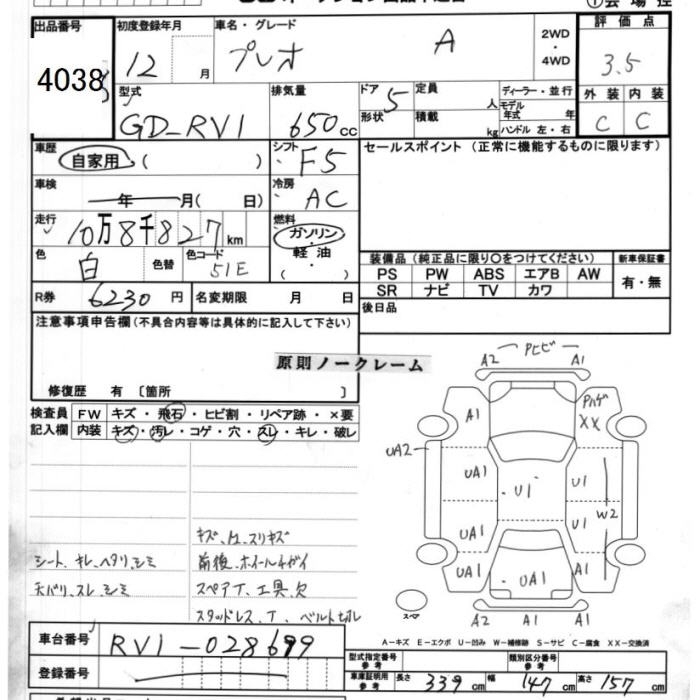 出品番号 4038
初度登録年月 12 月
車名・グレード プレオ A
2WD・4WD
評価点 3.5
型式 GD-RV1
排気量 650 cc
ドア 5
形状
定員 人
積載 kg
ディーラー・並行
モデル年式 年
ハンドル 左・右
外装 内装
C C
車歴 自家用 ( )
シフト F5
セールスポイント (正常に機能するものに限ります)
車検 年 月( 日)
冷房 AC
走行 10万8千827 km
燃料 ガソリン・軽油 ( )
色 白 色替 色コード 51E
装備品 (純正品に限り○をつけてください) 新車保証書
PS PW ABS エアB AW 有・無
SR ナビ TV カワ
R券 6230 円 名変期限 月 日
後日品
注意事項申告欄(不具合内容等は具体的に記入して下さい)
原則ノークレーム
修復歴 有 〔箇所 〕
検査員記入欄 FW キズ・飛石・ヒビ割・リペア跡・×要
内装 キズ・汚レ・コゲ・穴・スレ・キレ・破レ
A2 Pヒビ A1
A1 Pハゲ XX
UA2
UA1 U1 U1
UA1 U1 W2
UA1 UA1 A1
A2 A1 A1
スペア
シート、キレ、ヘタリ、シミ
天バリ、スレ、シミ
前後、ホイールチガイ
スペアT、工具、欠
スタッドレス、T、ベルト切レ
A-キズ E-エクボ U-凹み W-補修跡 S-サビ C-腐食 XX-交換済
車台番号 RV1-028699
登録番号
型式指定番号 参考 類別区分番号 参考
車庫証明用 参考 長さ 339 cm 幅 147 cm 高さ 157 cm